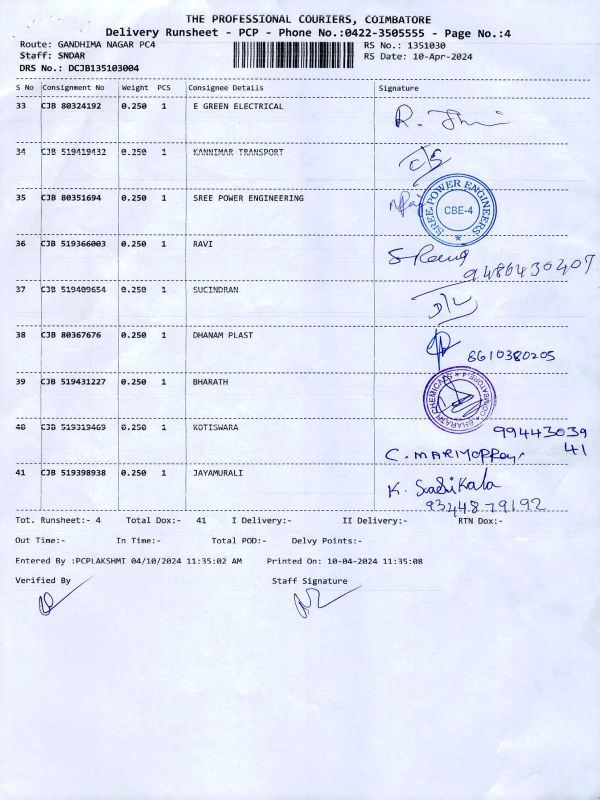 THE PROFESSIONAL COURIERS, COIMBATORE
Delivery Runsheet - PCP - Phone No.:0422-3505555 - Page No.:4
Route: GANDHIMA NAGAR PC4 RS No.: 1351030
Staff: SNDAR RS Date: 10-Apr-2024
DRS No.: DCJB135103004
S No Consignment No Weight PCS Consignee Details Signature
33 CJB 80324192 0.250 1 E GREEN ELECTRICAL
34 CJB 519419432 0.250 1 KANNIMAR TRANSPORT C/S
35 CJB 80351694 0.250 1 SREE POWER ENGINEERING SREE POWER ENGINEERS CBE-4
36 CJB 519366003 0.250 1 RAVI
9486430407
37 CJB 519409654 0.250 1 SUCINDRAN D/L
38 CJB 80367676 0.250 1 DHANAM PLAST 8610380205
39 CJB 519431227 0.250 1 BHARATH BHARATH CHEMICALS COIMBATORE-4
40 CJB 519319469 0.250 1 KOTISWARA 99443039
41
C.
41 CJB 519398938 0.250 1 JAYAMURALI K. Sasikala
9344879192
Tot. Runsheet:- 4 Total Dox:- 41 I Delivery:- II Delivery:- RTN Dox:-
Out Time:- In Time:- Total POD:- Delvy Points:-
Entered By :PCPLAKSHMI 04/10/2024 11:35:02 AM Printed On: 10-04-2024 11:35:08
Verified By Staff Signature